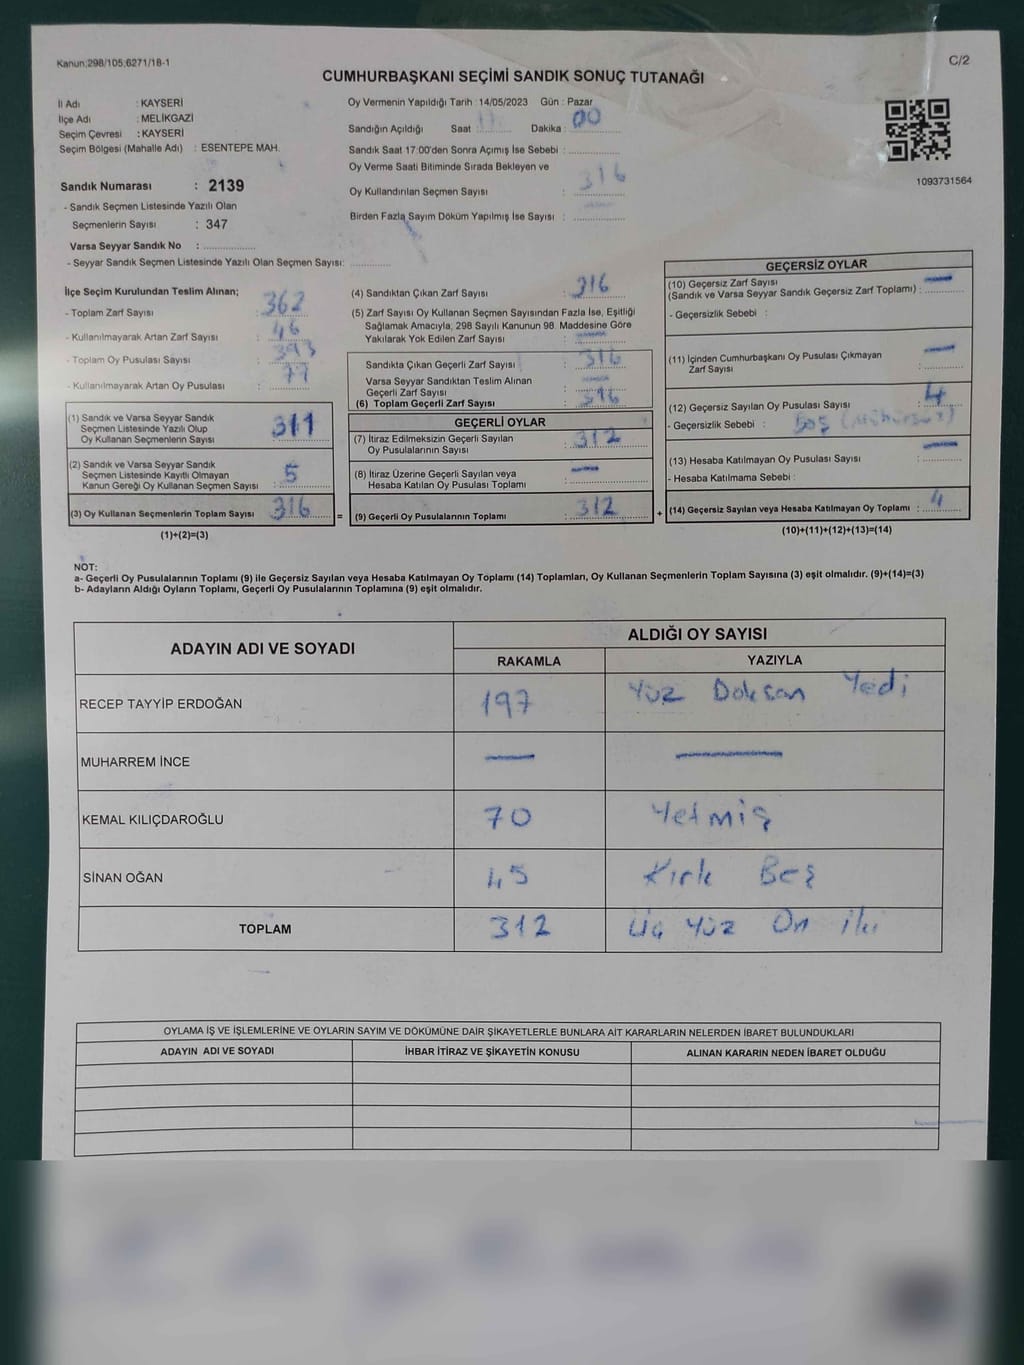 Kanun;298/105;6271/18-1
C/2
CUMHURBAŞKANI SEÇİMİ SANDIK SONUÇ TUTANAĞI
İl Adı : KAYSERİ
İlçe Adı : MELİKGAZİ
Seçim Çevresi : KAYSERİ
Seçim Bölgesi (Mahalle Adı) : ESENTEPE MAH.
Sandık Numarası : 2139
- Sandık Seçmen Listesinde Yazılı Olan
Seçmenlerin Sayısı : 347
Varsa Seyyar Sandık No : ..............
- Seyyar Sandık Seçmen Listesinde Yazılı Olan Seçmen Sayısı: ............
Oy Vermenin Yapıldığı Tarih : 14/05/2023 Gün : Pazar
Sandığın Açıldığı Saat Dakika : 00
Sandık Saat 17:00'den Sonra Açımış İse Sebebi : ..............
Oy Verme Saati Bitiminde Sırada Bekleyen ve
Oy Kullandırılan Seçmen Sayısı : 316
Birden Fazla Sayım Döküm Yapılmış İse Sayısı : ..............
1093731564
İlçe Seçim Kurulundan Teslim Alınan;
- Toplam Zarf Sayısı : 362
- Kullanılmayarak Artan Zarf Sayısı : 46
- Toplam Oy Pusulası Sayısı : 393
- Kullanılmayarak Artan Oy Pusulası : 77
(1) Sandık ve Varsa Seyyar Sandık
Seçmen Listesinde Yazılı Olup
Oy Kullanan Seçmenlerin Sayısı : 311
(2) Sandık ve Varsa Seyyar Sandık
Seçmen Listesinde Kayıtlı Olmayan
Kanun Gereği Oy Kullanan Seçmen Sayısı : 5
(3) Oy Kullanan Seçmenlerin Toplam Sayısı : 316
(1)+(2)=(3)
=
(4) Sandıktan Çıkan Zarf Sayısı : 316
(5) Zarf Sayısı Oy Kullanan Seçmen Sayısından Fazla İse, Eşitliği
Sağlamak Amacıyla, 298 Sayılı Kanunun 98. Maddesine Göre
Yakılarak Yok Edilen Zarf Sayısı : —
Sandıkta Çıkan Geçerli Zarf Sayısı : 316
Varsa Seyyar Sandıktan Teslim Alınan
Geçerli Zarf Sayısı : —
(6) Toplam Geçerli Zarf Sayısı : 316
GEÇERLİ OYLAR
(7) İtiraz Edilmeksizin Geçerli Sayılan
Oy Pusulalarının Sayısı : 312
(8) İtiraz Üzerine Geçerli Sayılan veya
Hesaba Katılan Oy Pusulası Toplamı : —
(9) Geçerli Oy Pusulalarının Toplamı : 312
+
GEÇERSİZ OYLAR
(10) Geçersiz Zarf Sayısı
(Sandık ve Varsa Seyyar Sandık Geçersiz Zarf Toplamı) : —
- Geçersizlik Sebebi :
(11) İçinden Cumhurbaşkanı Oy Pusulası Çıkmayan
Zarf Sayısı : —
(12) Geçersiz Sayılan Oy Pusulası Sayısı : 4
- Geçersizlik Sebebi : Boş (Mühürsüz)
(13) Hesaba Katılmayan Oy Pusulası Sayısı : —
- Hesaba Katılmama Sebebi :
(14) Geçersiz Sayılan veya Hesaba Katılmayan Oy Toplamı : 4
(10)+(11)+(12)+(13)=(14)
NOT:
a- Geçerli Oy Pusulalarının Toplamı (9) ile Geçersiz Sayılan veya Hesaba Katılmayan Oy Toplamı (14) Toplamları, Oy Kullanan Seçmenlerin Toplam Sayısına (3) eşit olmalıdır. (9)+(14)=(3)
b- Adayların Aldığı Oyların Toplamı, Geçerli Oy Pusulalarının Toplamına (9) eşit olmalıdır.
ADAYIN ADI VE SOYADI ALDIĞI OY SAYISI
RAKAMLA YAZIYLA
RECEP TAYYİP ERDOĞAN 197 Yüz Doksan Yedi
MUHARREM İNCE — —
KEMAL KILIÇDAROĞLU 70 Yetmiş
SİNAN OĞAN 45 Kırk Beş
TOPLAM 312 Üç Yüz On iki
OYLAMA İŞ VE İŞLEMLERİNE VE OYLARIN SAYIM VE DÖKÜMÜNE DAİR ŞİKAYETLERLE BUNLARA AİT KARARLARIN NELERDEN İBARET BULUNDUKLARI
ADAYIN ADI VE SOYADI İHBAR İTİRAZ VE ŞİKAYETİN KONUSU ALINAN KARARIN NEDEN İBARET OLDUĞU